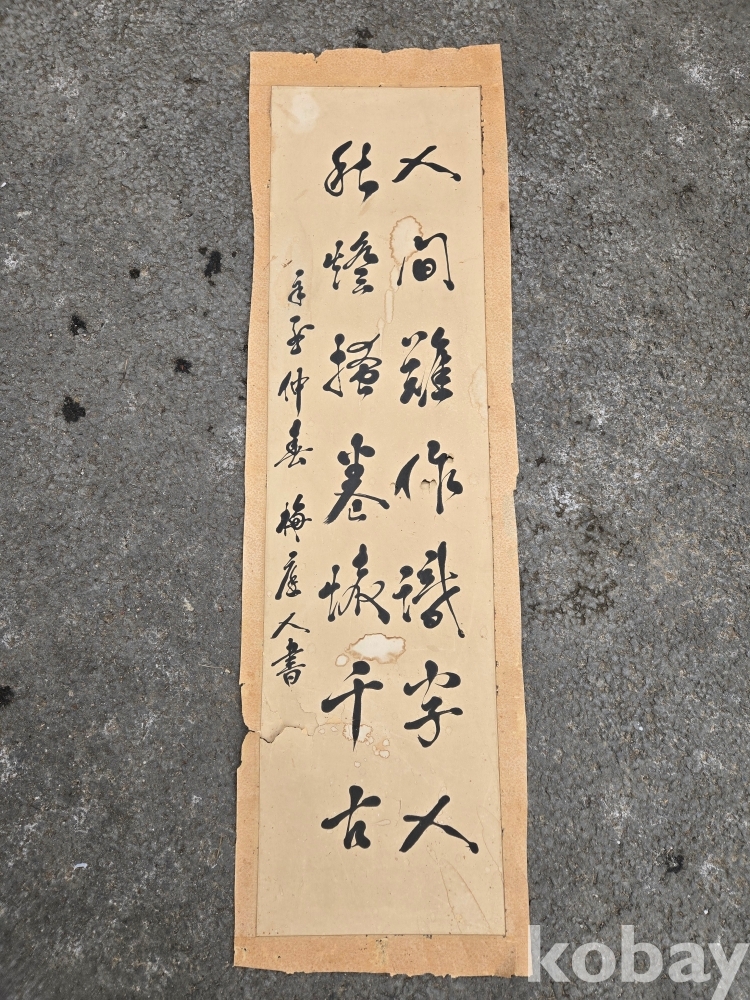 人間難作識字人
秋燈掩卷懷千古
辛亥仲春 梅庭人書
kobay